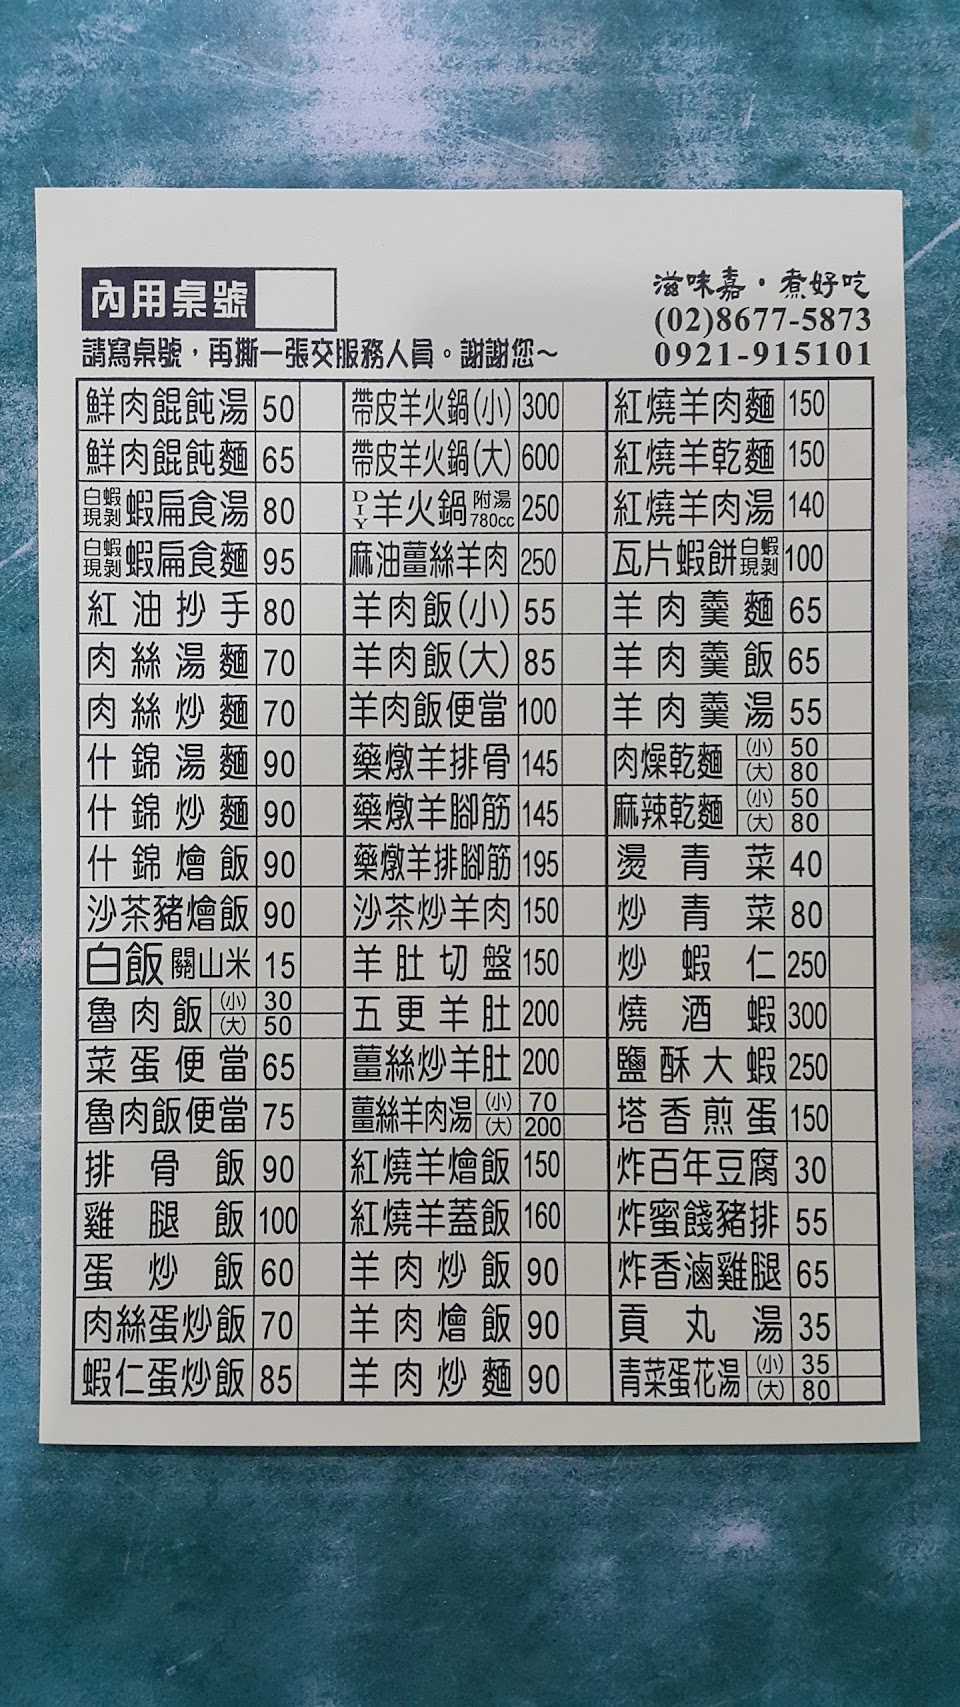 內用桌號
請寫桌號，再撕一張交服務人員。謝謝您～
滋味嘉・煮好吃
(02)8677-5873
0921-915101
鮮肉餛飩湯 50
鮮肉餛飩麵 65
白蝦現剝 蝦扁食湯 80
白蝦現剝 蝦扁食麵 95
紅油抄手 80
肉絲湯麵 70
肉絲炒麵 70
什錦湯麵 90
什錦炒麵 90
什錦燴飯 90
沙茶豬燴飯 90
白飯 關山米 15
魯肉飯 (小) 30
(大) 50
菜蛋便當 65
魯肉飯便當 75
排骨飯 90
雞腿飯 100
蛋炒飯 60
肉絲蛋炒飯 70
蝦仁蛋炒飯 85
帶皮羊火鍋(小) 300
帶皮羊火鍋(大) 600
DIY 羊火鍋 附湯780cc 250
麻油薑絲羊肉 250
羊肉飯(小) 55
羊肉飯(大) 85
羊肉飯便當 100
藥燉羊排骨 145
藥燉羊腳筋 145
藥燉羊排腳筋 195
沙茶炒羊肉 150
羊肚切盤 150
五更羊肚 200
薑絲炒羊肚 200
薑絲羊肉湯 (小) 70
(大) 200
紅燒羊燴飯 150
紅燒羊蓋飯 160
羊肉炒飯 90
羊肉燴飯 90
羊肉炒麵 90
紅燒羊肉麵 150
紅燒羊乾麵 150
紅燒羊肉湯 140
瓦片蝦餅 白蝦現剝 100
羊肉羹麵 65
羊肉羹飯 65
羊肉羹湯 55
肉燥乾麵 (小) 50
(大) 80
麻辣乾麵 (小) 50
(大) 80
燙青菜 40
炒青菜 80
炒蝦仁 250
燒酒蝦 300
鹽酥大蝦 250
塔香煎蛋 150
炸百年豆腐 30
炸蜜餞豬排 55
炸香滷雞腿 65
貢丸湯 35
青菜蛋花湯 (小) 35
(大) 80